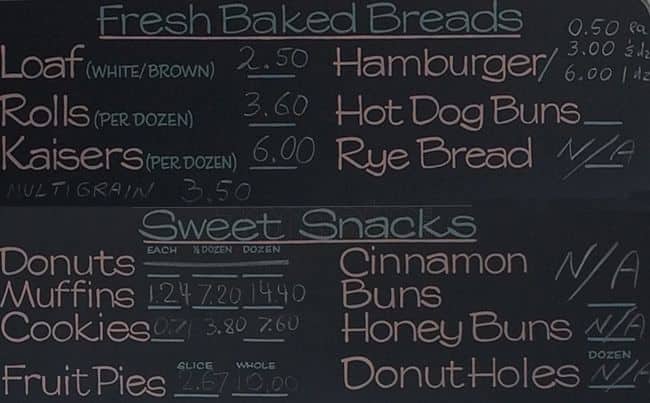 Fresh Baked Breads
Loaf (WHITE/BROWN) 2.50
Rolls (PER DOZEN) 3.60
Kaisers (PER DOZEN) 6.00
MULTIGRAIN 3.50
Hamburger/ 0.50 ea
3.00 ½ dz
6.00 1 dz
Hot Dog Buns
Rye Bread N/A
Sweet Snacks
EACH ½ DOZEN DOZEN
Donuts
Muffins 1.24 7.20 14.40
Cookies 3.80 7.60
SLICE WHOLE
Fruit Pies 2.67 10.00
Cinnamon N/A
Buns
Honey Buns N/A
DOZEN
Donut Holes N/A